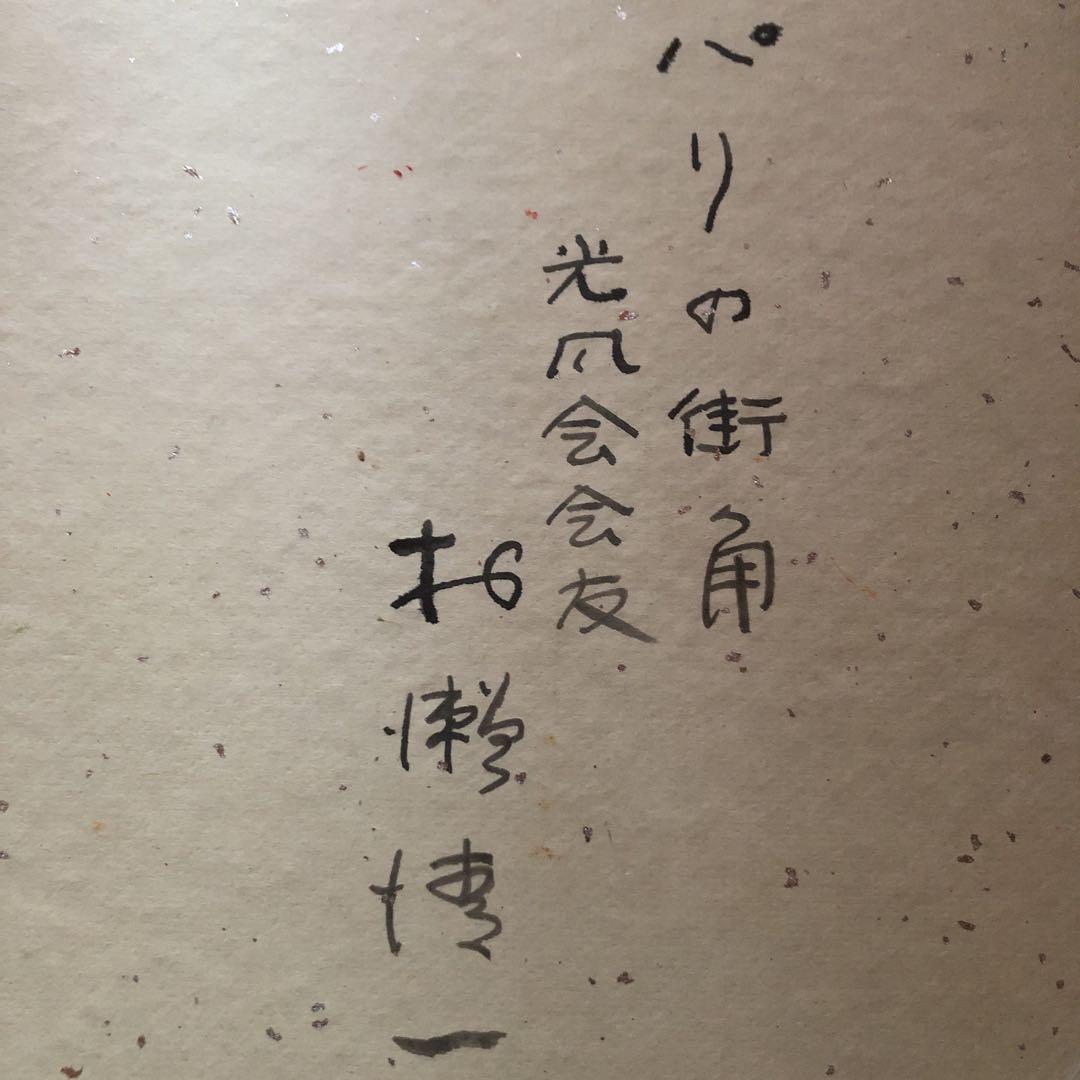 パリの街角
光風会会友
瀬博一